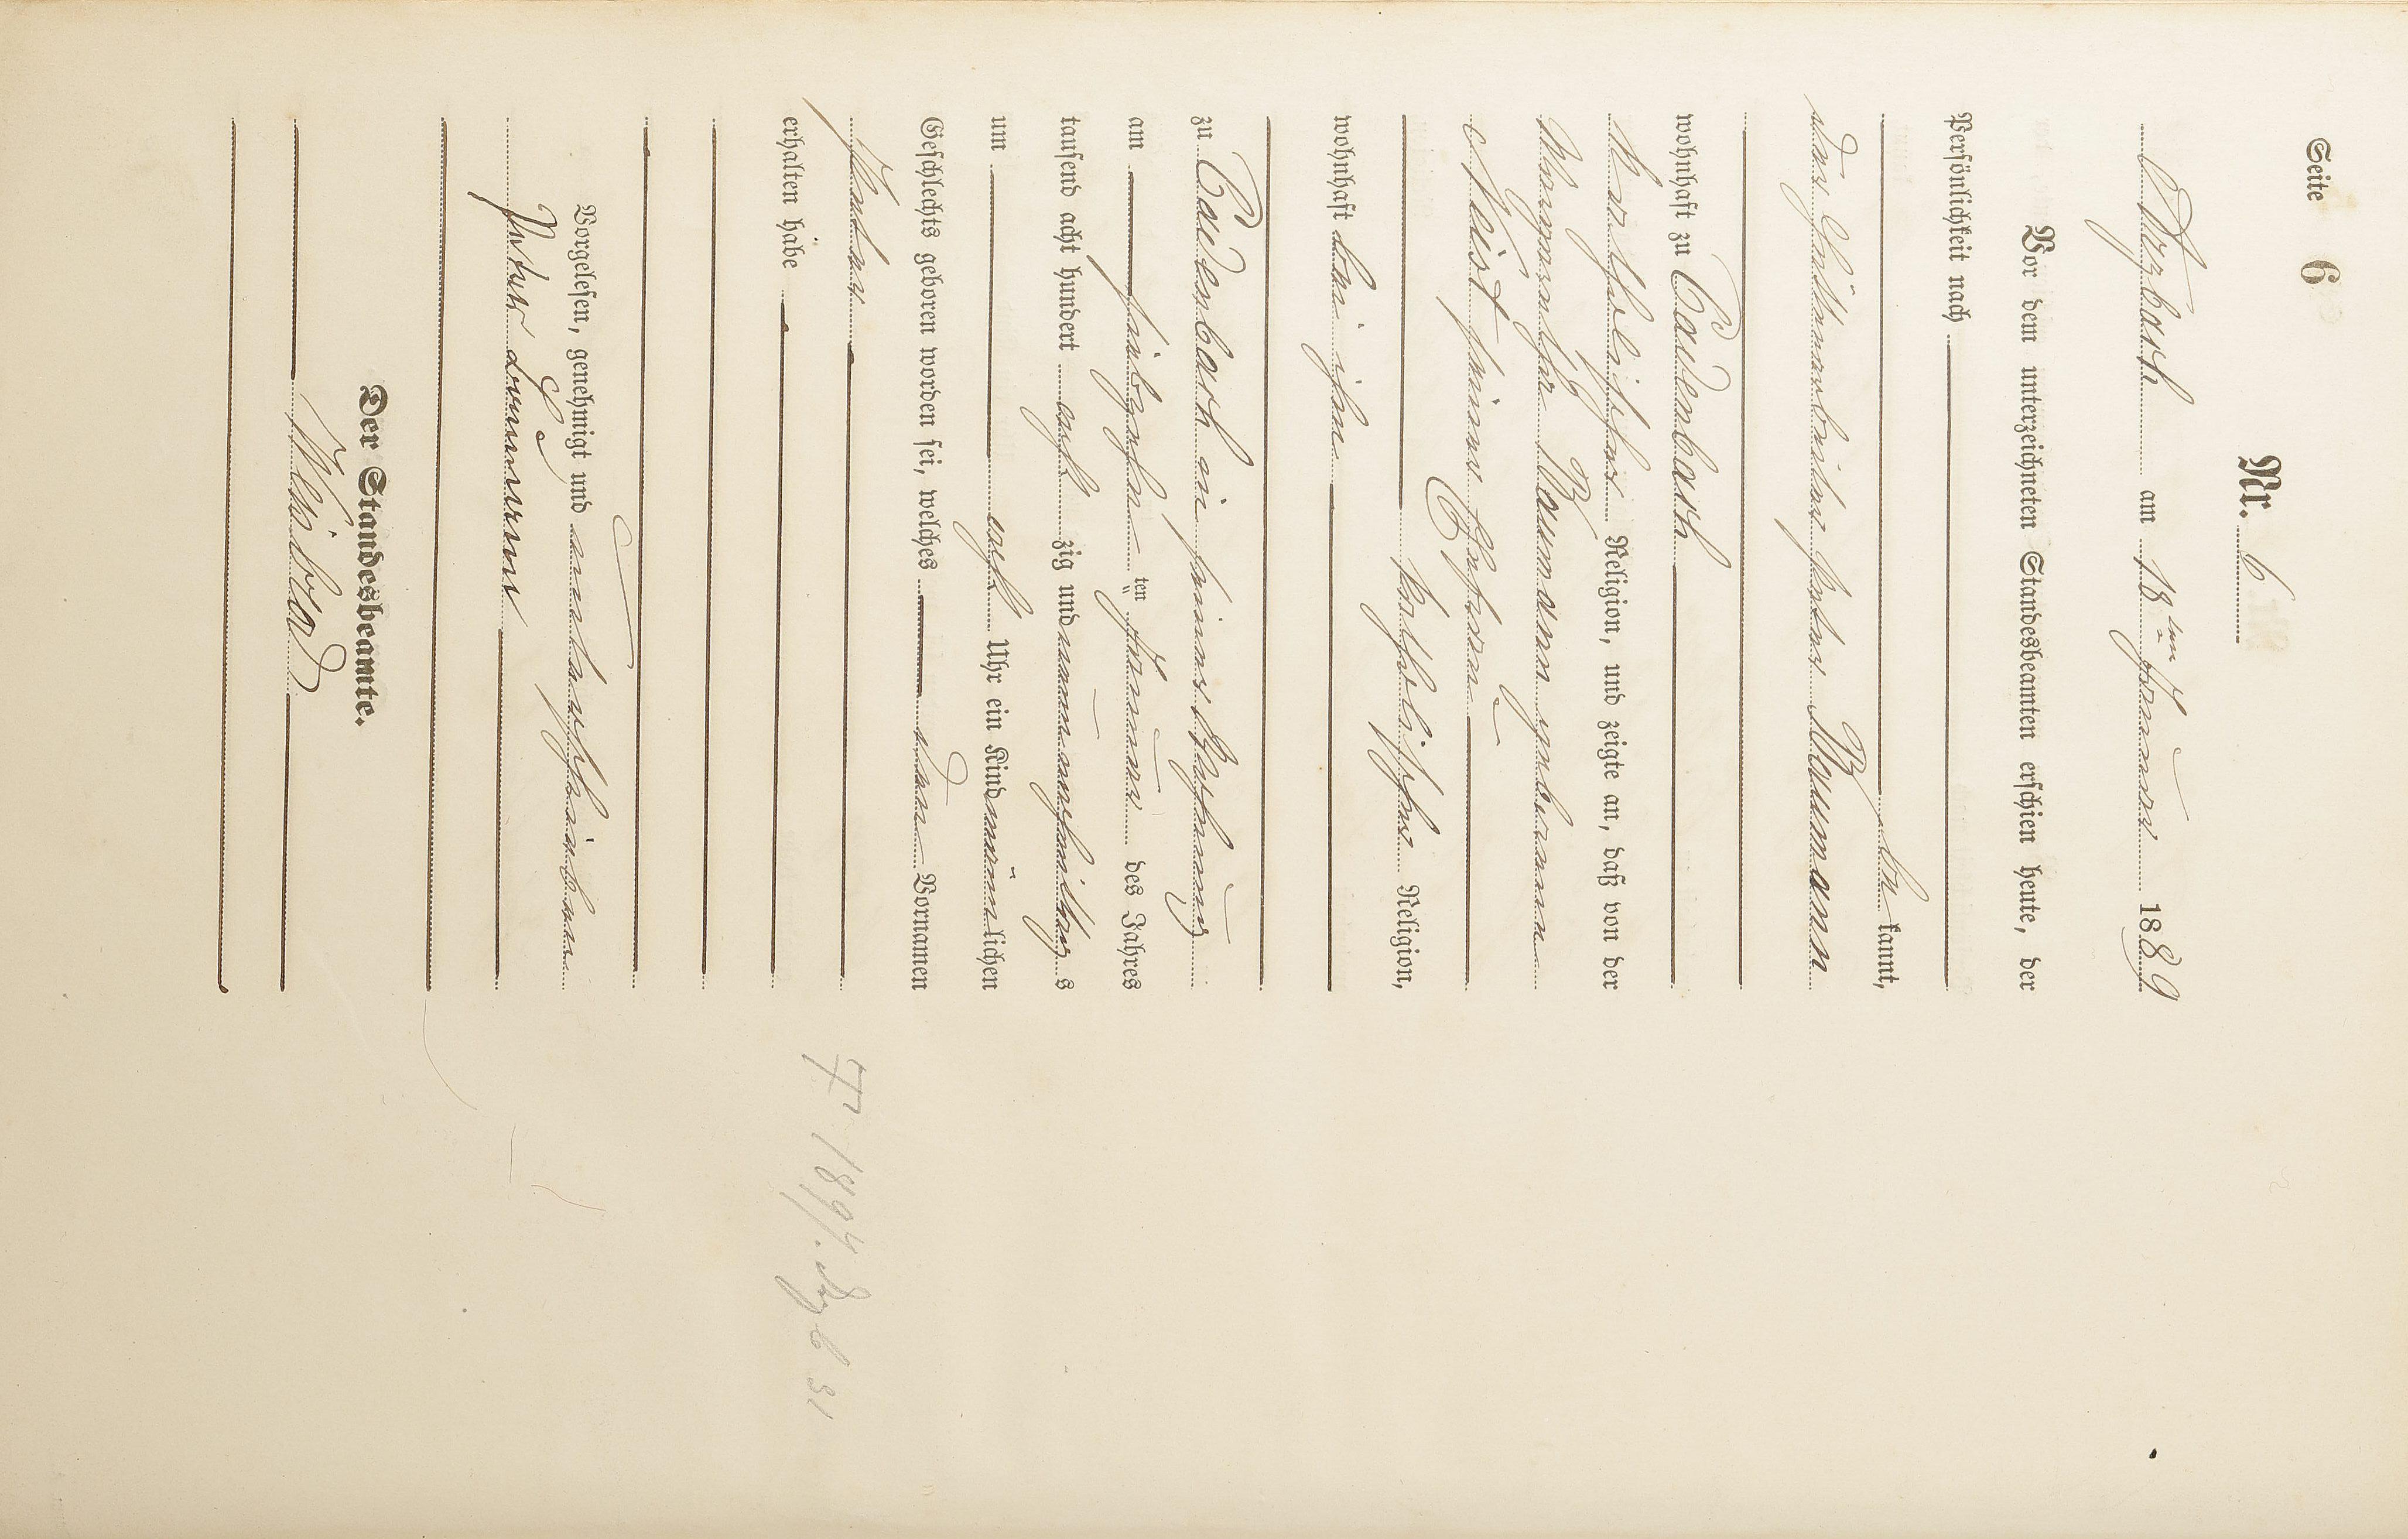 Seite 6
Nr. 6
Asbach am 18ten Januar 1889
Vor dem unterzeichneten Standesbeamten erschien heute, der
Persönlichkeit nach
be kannt,
der Hüttenarbeiter Peter Baumann
wohnhaft zu Cadenbach
katholischer Religion, und zeigte an, daß von der
Margaretha Baumann geborenen
Neist seiner Ehefrau
katholischer Religion,
wohnhaft bei ihm
zu Cadenbach in seiner Wohnung
am fünfzehn ten Januar des Jahres
tausend acht hundert acht zig und neun nachmittags
um acht Uhr ein Kind männlichen
Geschlechts geboren worden sei, welches den Vornamen
Peter
erhalten habe
Vorgelesen, genehmigt und unterschrieben
Peter Baumann
Der Standesbeamte.
† 1894.